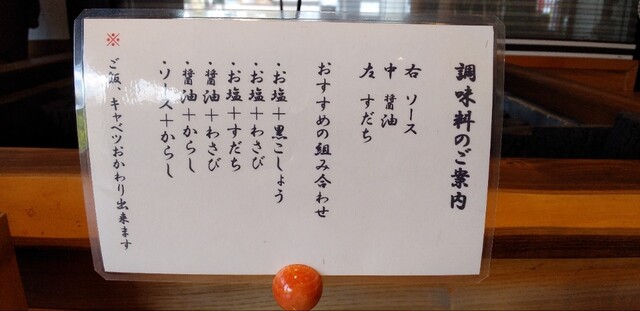 調味料のご案内
右 ソース
中 醤油
左 すだち
おすすめの組み合わせ
・お塩＋黒こしょう
・お塩＋わさび
・お塩＋すだち
・醤油＋わさび
・醤油＋からし
・ソース＋からし
※ご飯、キャベツおかわり出来ます